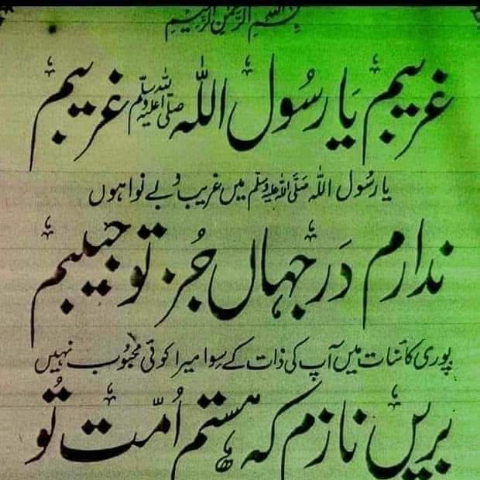 بسم اللہ الرحمن الرحیم
غریبم یَا رسُول اللہ ﷺ غریبم
یا رسُول اللہ صَلَّی اللہُ عَلَیْہِ وَسَلَّم میں غریب و بے نوا ہوں
ندارم دَر جہاں جُز تو حبیبم
پوری کائنات میں آپ کی ذات کے سِوا میرا کوئی محبُوب نہیں
بریں نازم کہ ہستم اُمّت تُو